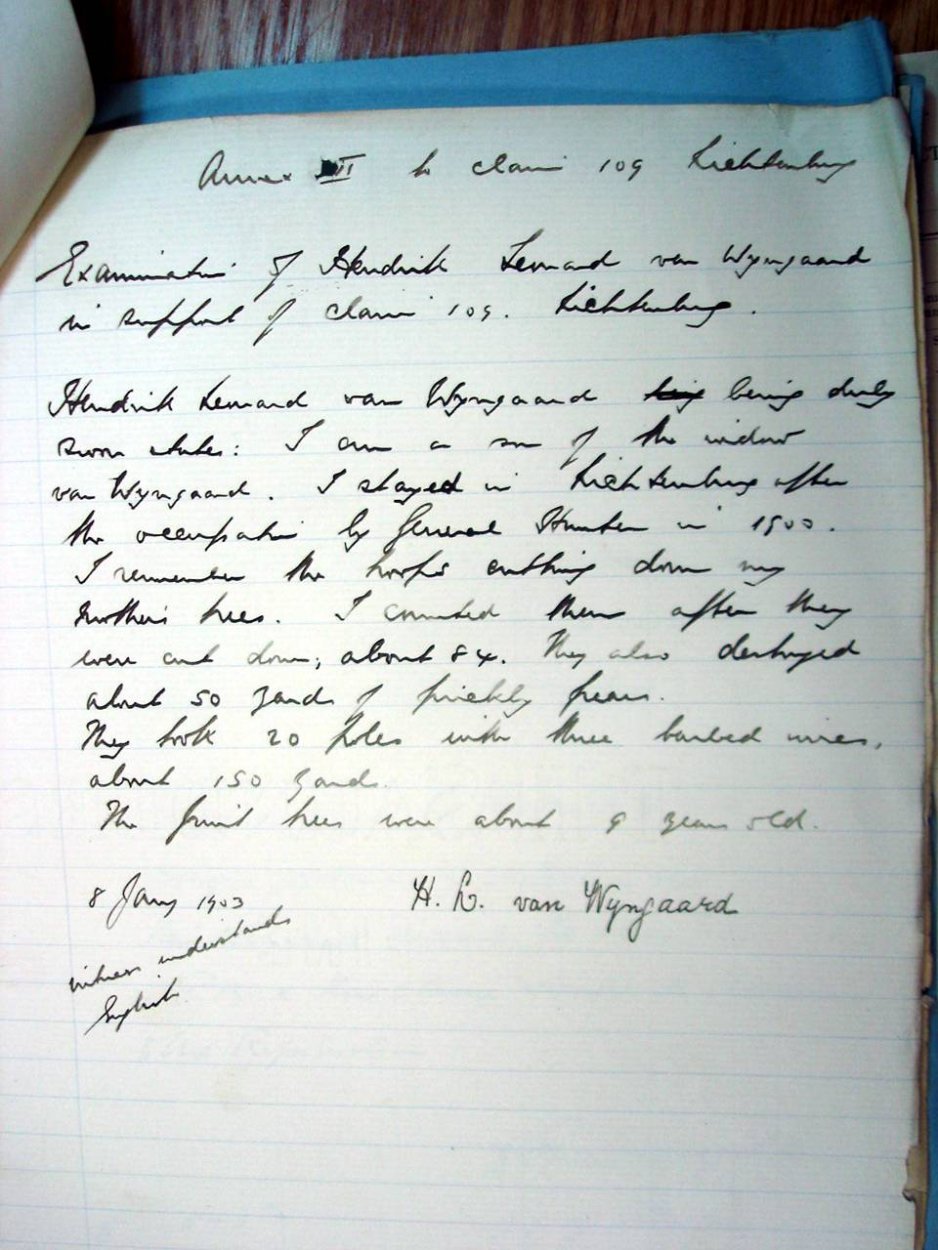 Annex III to claim 109 Lichtenburg
Examination of Hendrik Lennard van Wyngaard
in support of claim 109. Lichtenburg.
Hendrik Lennard van Wyngaard being duly
sworn states: I am a son of the widow
van Wyngaard. I stayed in Lichtenburg after
the occupation by General Hunter in 1900.
I remember the troops cutting down my
mother's trees. I counted them after they
were cut down; about 84. They also destroyed
about 50 yards of prickly pears.
They took 20 poles with three barbed wires,
about 150 yards.
The fruit trees were about 9 years old.
8 Jany 1903 H. L. van Wyngaard
witness understands
English